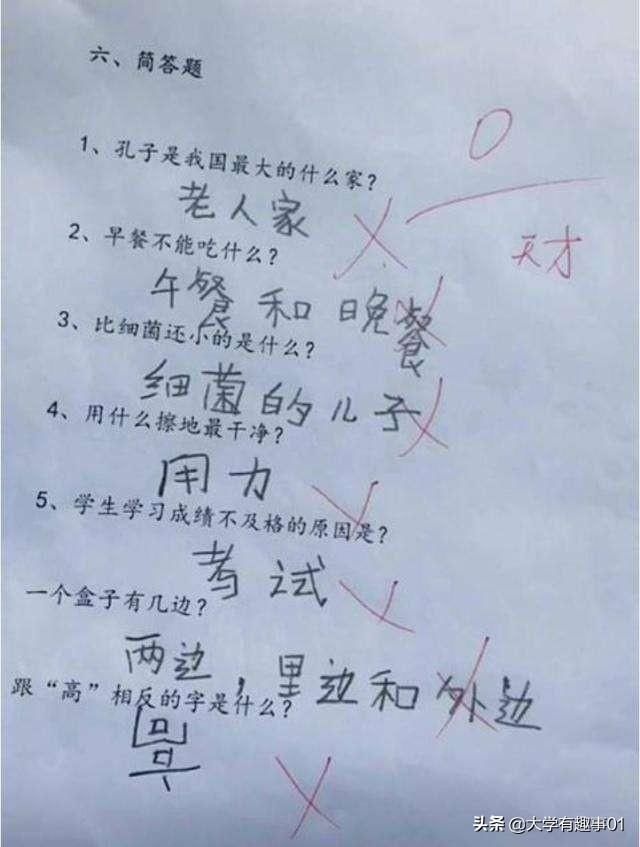 六、简答题
0
1、孔子是我国最大的什么家?
老人家
天才
2、早餐不能吃什么?
午餐和晚餐
3、比细菌还小的是什么?
细菌的儿子
4、用什么擦地最干净?
用力
5、学生学习成绩不及格的原因是?
考试
一个盒子有几边?
两边，里边和外边
跟“高”相反的字是什么?
头条 @大学有趣事01